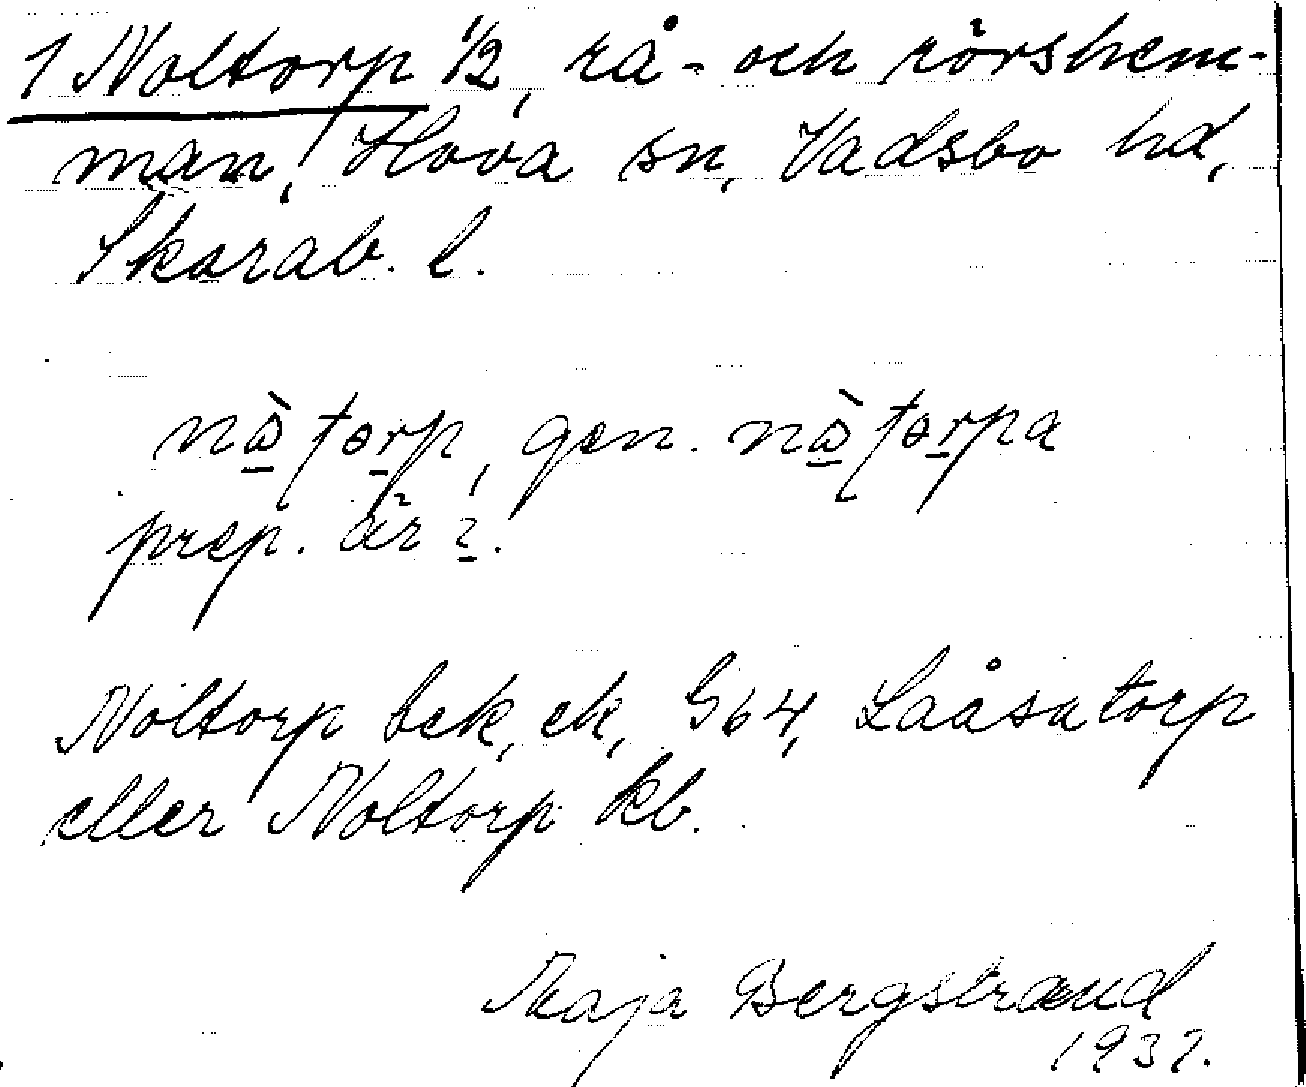 1 Noltorp 1/2, rå- och rörshem-
man, Hova sn, Vadsbo hd,
Skarab. l.
nà̱ torp, gen. nà̱ torpa
prep. är i.
Noltorp bek, ek, G64, Laåsatorp
eller Noltorp kb.
Maja Bergstrand
1937.